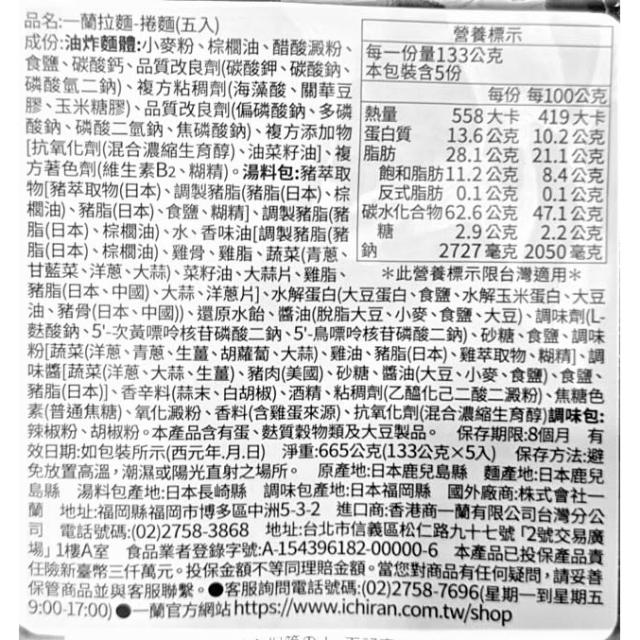 品名:一蘭拉麵-捲麵(五入)
成份:油炸麵體:小麥粉、棕櫚油、醋酸澱粉、
食鹽、碳酸鈣、品質改良劑(碳酸鉀、碳酸鈉、
磷酸氫二鈉)、複方粘稠劑(海藻酸、關華豆
膠、玉米糖膠)、品質改良劑(偏磷酸鈉、多磷
酸鈉、磷酸二氫鈉、焦磷酸鈉)、複方添加物
[抗氧化劑(混合濃縮生育醇)、油菜籽油]、複
方著色劑(維生素B2、糊精)。湯料包:豬萃取
物[豬萃取物(日本)、調製豬脂(豬脂(日本)、棕
櫚油)、豬脂(日本)、食鹽、糊精]、調製豬脂(豬
脂(日本)、棕櫚油)、水、香味油[調製豬脂(豬
脂(日本)、棕櫚油)、雞骨、雞脂、蔬菜(青蔥、
甘藍菜、洋蔥、大蒜)、菜籽油、大蒜片、雞脂、
營養標示
每一份量133公克
本包裝含5份
每份 每100公克
熱量 558大卡 419大卡
蛋白質 13.6公克 10.2公克
脂肪 28.1公克 21.1公克
飽和脂肪 11.2公克 8.4公克
反式脂肪 0.1公克 0.1公克
碳水化合物 62.6公克 47.1公克
糖 2.9公克 2.2公克
鈉 2727毫克 2050毫克
*此營養標示限台灣適用*
豬脂(日本、中國)、大蒜、洋蔥片]、水解蛋白(大豆蛋白、食鹽、水解玉米蛋白、大豆
油、豬骨(日本、中國))、還原水飴、醬油(脫脂大豆、小麥、食鹽、大豆)、調味劑(L-
麩酸鈉、5'-次黃嘌呤核苷磷酸二鈉、5'-鳥嘌呤核苷磷酸二鈉)、砂糖、食鹽、調味
粉[蔬菜(洋蔥、青蔥、生薑、胡蘿蔔、大蒜)、雞油、豬脂(日本)、雞萃取物、糊精]、調
味醬[蔬菜(洋蔥、大蒜、生薑)、豬肉(美國)、砂糖、醬油(大豆、小麥、食鹽)、食鹽、
豬脂(日本)]、香辛料(蒜末、白胡椒)、酒精、粘稠劑(乙醯化己二酸二澱粉)、焦糖色
素(普通焦糖)、氧化澱粉、香料(含雞蛋來源)、抗氧化劑(混合濃縮生育醇)調味包:
辣椒粉、胡椒粉。本產品含有蛋、麩質穀物類及大豆製品。 保存期限:8個月 有
效日期:如包裝所示(西元年.月.日) 淨重:665公克(133公克×5入) 保存方法:避
免放置高溫,潮濕或陽光直射之場所。 原產地:日本鹿兒島縣 麵產地:日本鹿兒
島縣 湯料包產地:日本長崎縣 調味包產地:日本福岡縣 國外廠商:株式會社一
蘭 地址:福岡縣福岡市博多區中洲5-3-2 進口商:香港商一蘭有限公司台灣分公
司 電話號碼:(02)2758-3868 地址:台北市信義區松仁路九十七號「2號交易廣
場」1樓A室 食品業者登錄字號:A-154396182-00000-6 本產品已投保產品責
任險新臺幣三仟萬元。投保金額不等同理賠金額。當您對商品有任何疑問,請妥善
保管商品並與客服聯繫。●客服詢問電話號碼:(02)2758-7696(星期一到星期五
9:00-17:00)●一蘭官方網站https://www.ichiran.com.tw/shop